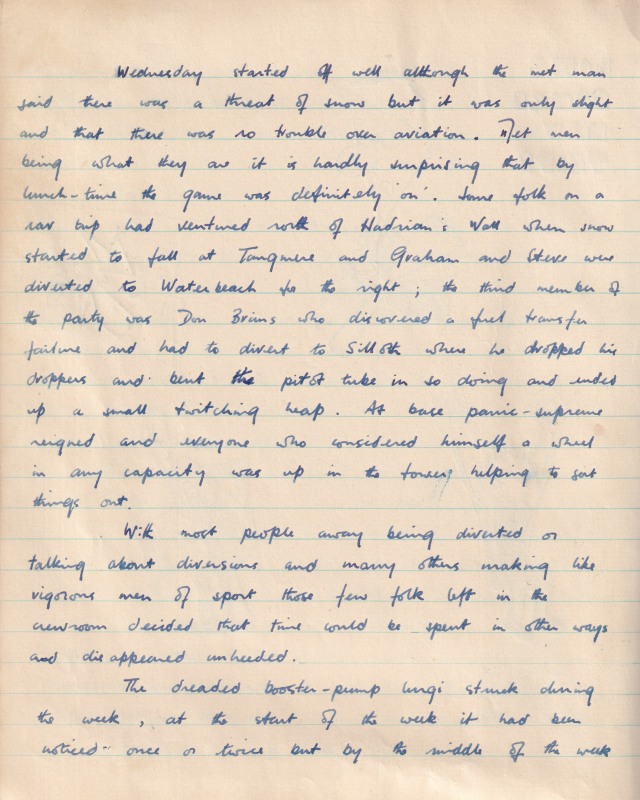 Wednesday started off well although the met man
said there was a threat of snow but it was only slight
and that there was no trouble over aviation. Met men
being what they are it is hardly surprising that by
lunch-time the game was definitely 'on'. Some folk on a
nav trip had ventured north of Hadrian's Wall when snow
started to fall at Tangmere and Graham and Steve were
diverted to Waterbeach for the night; the third member of
the party was Don Brims who discovered a fuel transfer
failure and had to divert to Silloth where he dropped his
droppers and bent the pitot tube in so doing and ended
up a small twitching heap. At base panic-supreme
reigned and everyone who considered himself a wheel
in any capacity was up in the tower helping to sort
things out.
With most people away being diverted or
talking about diversions and many others making like
vigorous men of sport those few folk left in the
crewroom decided that time could be spent in other ways
and disappeared unheeded.
The dreaded booster-pump lurgi struck during
the week, at the start of the week it had been
noticed once or twice but by the middle of the week